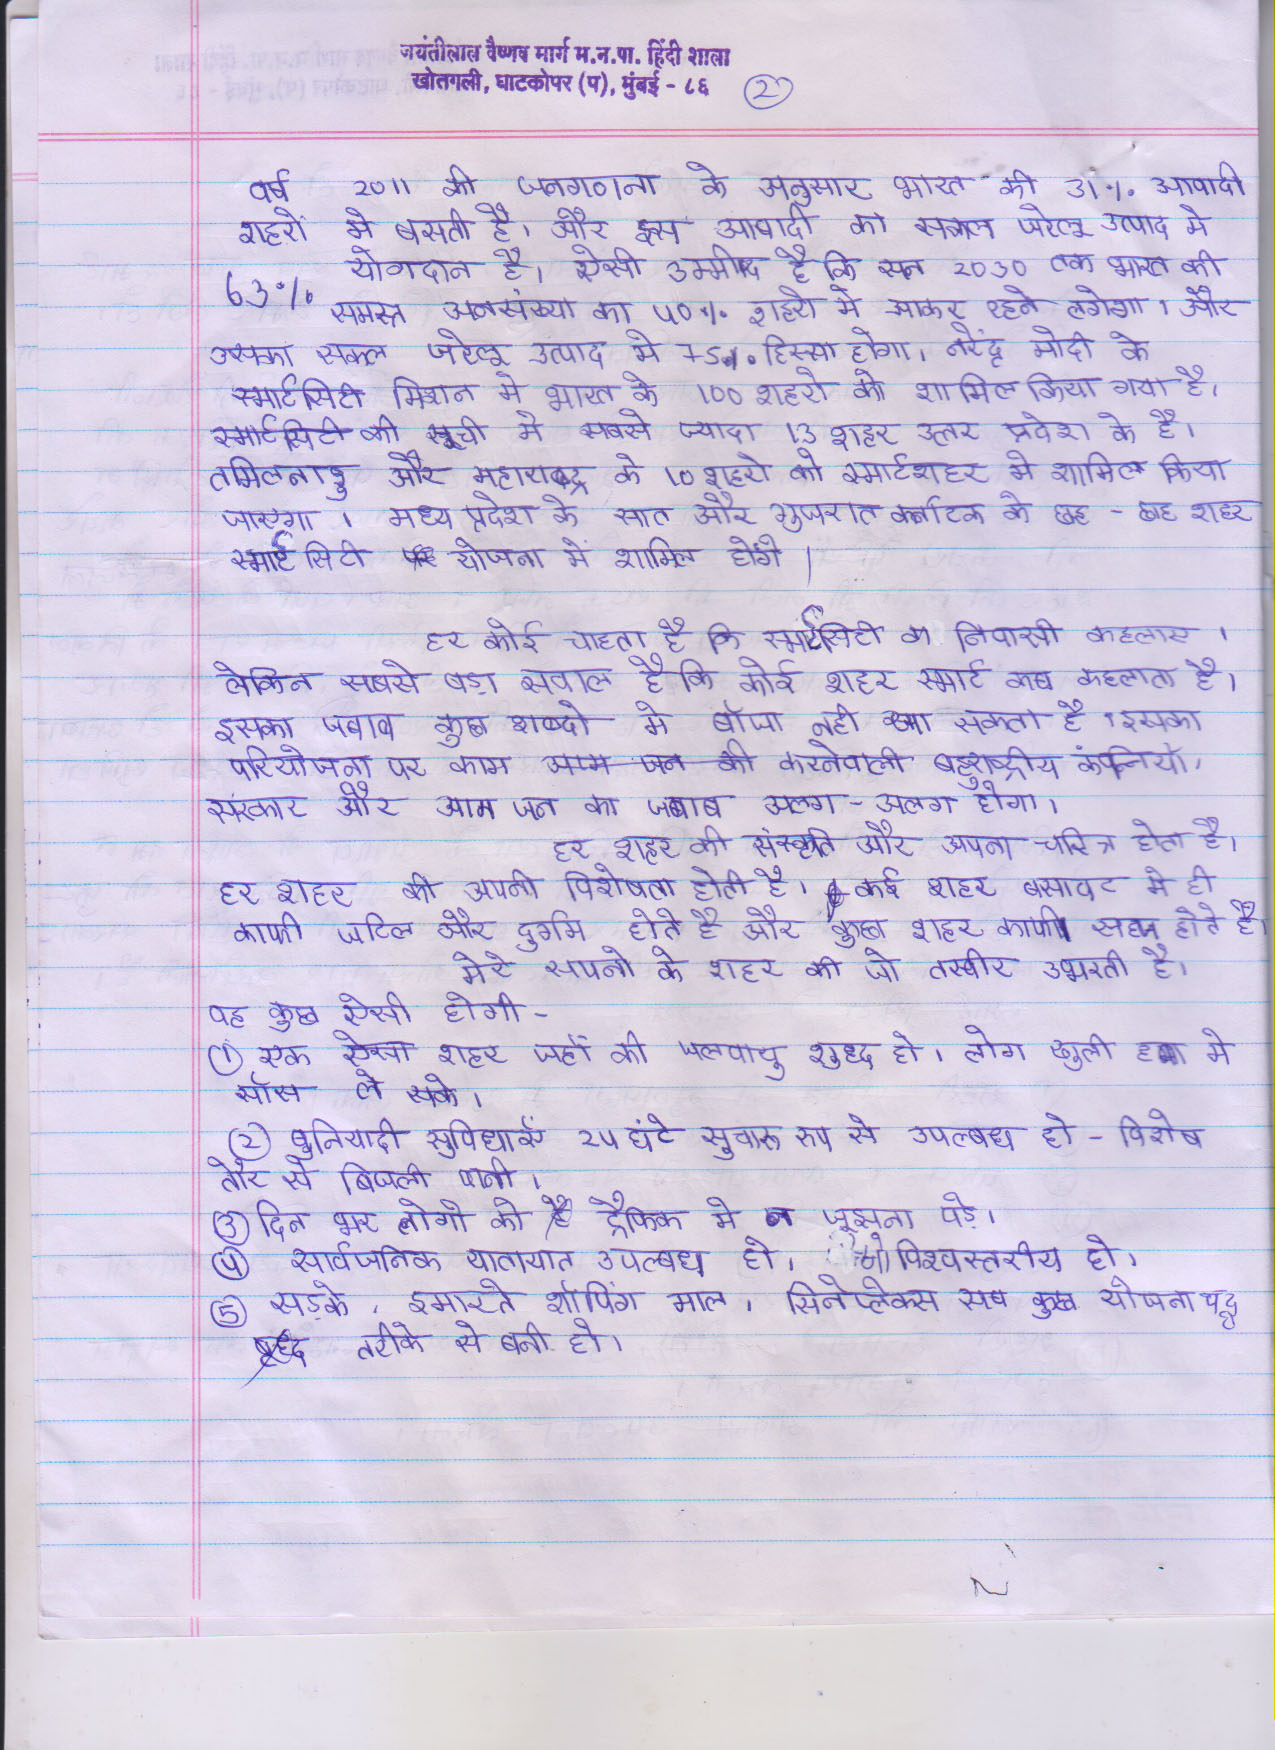 जयंतीलाल वैष्णव मार्ग म.न.पा. हिंदी शाला
खोतगली, घाटकोपर (प), मुंबई - ८६ 2
वर्ष 2011 की जनगणना के अनुसार भारत की 31% आबादी
शहरों में बसती है। और इस आबादी का सकल घरेलू उत्पाद मे
63% योगदान है। ऐसी उम्मीद है कि सन 2030 तक भारत की
समस्त जनसंख्या का 40% शहरो में आकर रहने लगेगा। और
उसका सकल घरेलू उत्पाद मे 75% हिस्सा होगा। नरेंद्र मोदी के
स्मार्टसिटी मिशन मे भारत के 100 शहरो को शामिल किया गया है।
स्मार्टसिटी की सूची मे सबसे ज्यादा 13 शहर उत्तर प्रदेश के है।
तमिलनाडु और महाराष्ट्र के 10 शहरो को स्मार्टशहर मे शामिल किया
जाएगा। मध्य प्रदेश के सात और गुजरात कर्नाटक के छह - छह शहर
स्मार्ट सिटी योजना में शामिल होंगे।
हर कोई चाहता है कि स्मार्टसिटी का निवासी कहलाए।
लेकिन सबसे बड़ा सवाल है कि कोई शहर स्मार्ट कब कहलाता है।
इसका जवाब कुछ शब्दो मे बाँधा नही जा सकता है। इसका
परियोजना पर काम आम जन की करनेवाली बहुराष्ट्रीय कंपनियाँ,
सरकार और आम जन का जबाब अलग - अलग होगा।
हर शहर की संस्कृति और अपना चरित्र होता है।
हर शहर की अपनी विशेषता होती है। कई शहर बसावट मे ही
काफी जटिल और दुर्गम होते है और कुछ शहर काफी सहज होते है।
मेरे सपनो के शहर की जो तस्वीर उभरती है।
वह कुछ ऐसी होगी -
(1) एक ऐसा शहर जहाँ की जलवायु शुध्द हो। लोग खुली हवा मे
साँस ले सके।
(2) बुनियादी सुविधाएँ 24 घंटे सुचारू रूप से उपल्बध हो - विशेष
तौर से बिजली पानी।
(3) दिन भर लोगो को ट्रैफिक मे न जूझना पड़े।
(4) सार्वजनिक यातायात उपल्बध हो। जो विश्वस्तरीय हो।
(5) सड़के, इमारते शॉपिंग माल, सिनेप्लेक्स सब कुछ योजना
बृध्द तरीके से बनी हो।